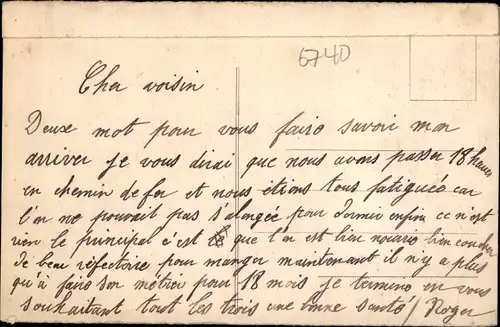 6740
Cher voisin
Deux mot pour vous faire savoir mon
arriver je vous dirai que nous avons passer 18 heures
en chemin de fer et nous étions tous fatiguées car
l'on ne pouvait pas s'alongée pour dormir enfin ce n'est
rien le principal c'est que l'on est bien nourrie bien coucher
de beau réfectoire pour manger maintenant il n'y a plus
qu'à faire son métier pour 18 mois je termine en vous
souhaitant tout les trois une bonne santé / Roger